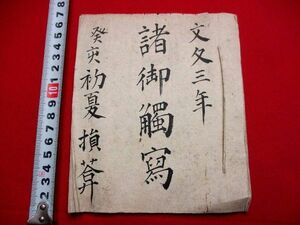 文久三年
諸御觸寫
癸亥初夏
10